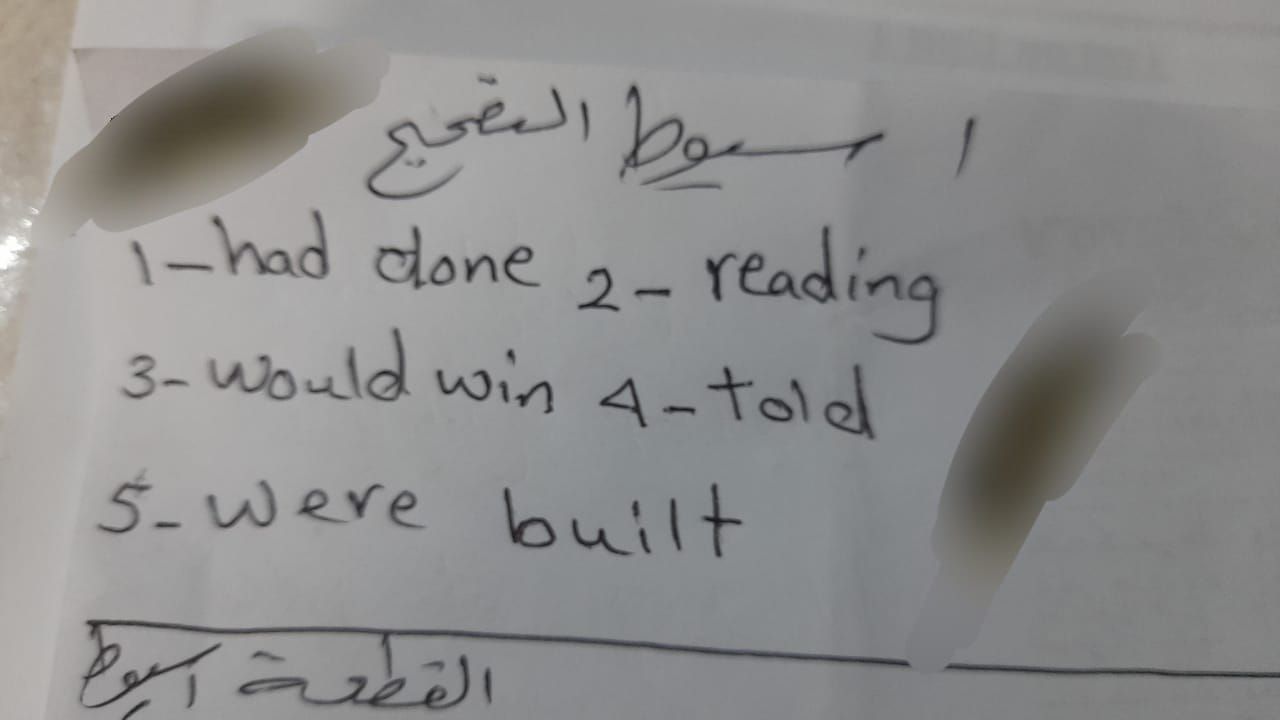 اسيوط التصحيح
1-had done 2- reading
3-would win 4-told
5-were built
القطعة اسيوط